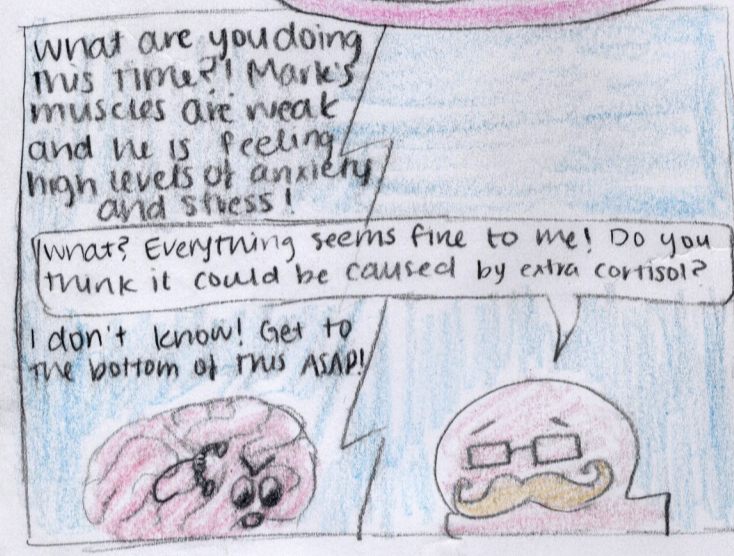 What are you doing
this time?! Mark's
muscles are weak
and he is feeling
high levels of anxiety
and stress!
What? Everything seems fine to me! Do you
think it could be caused by extra cortisol?
I don't know! Get to
the bottom of this ASAP!